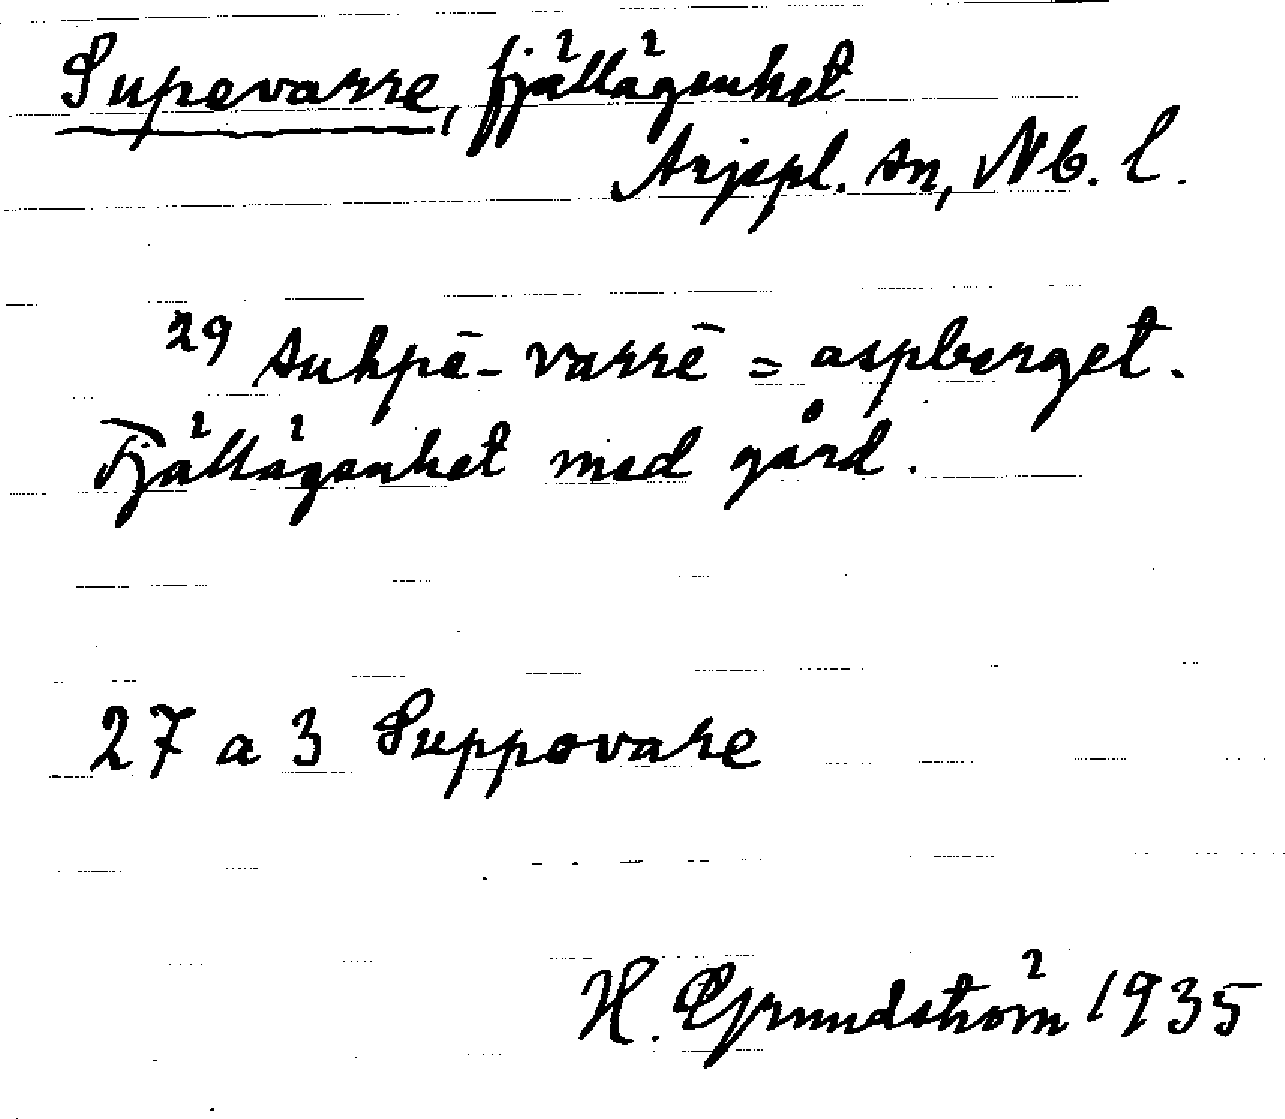 Supevarre, fjällägenhet
Arjepl. sn, Nb. l.
29 suhpē-varrē = aspberget.
Fjällägenhet med gård.
27 a 3 Suppovare
H. Grundström 1935